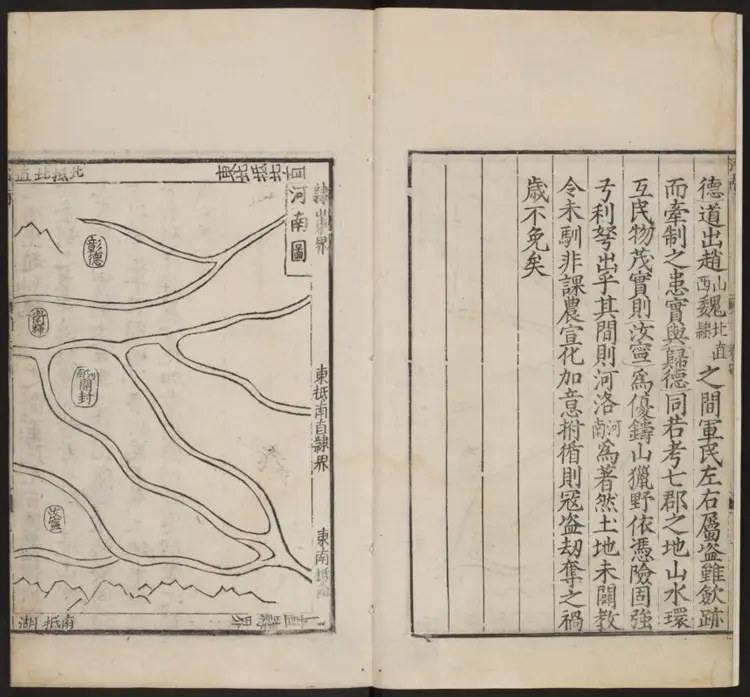 德道出趙山西魏北直隸之間軍民左右屬盜雖歛跡
而牽制之患實與歸德同若考七郡之地山水環
互民物茂實則汝寧為優鑄山獵野依憑險固強
弓利弩出乎其間則河洛河南為著然土地未闢教
令未馴非課農宣化加意拊循則冦盜劫奪之禍
歳不免矣
河南圖
彰德
衛輝
開封
汝寧
東抵南直隸界
東南抵
南抵湖